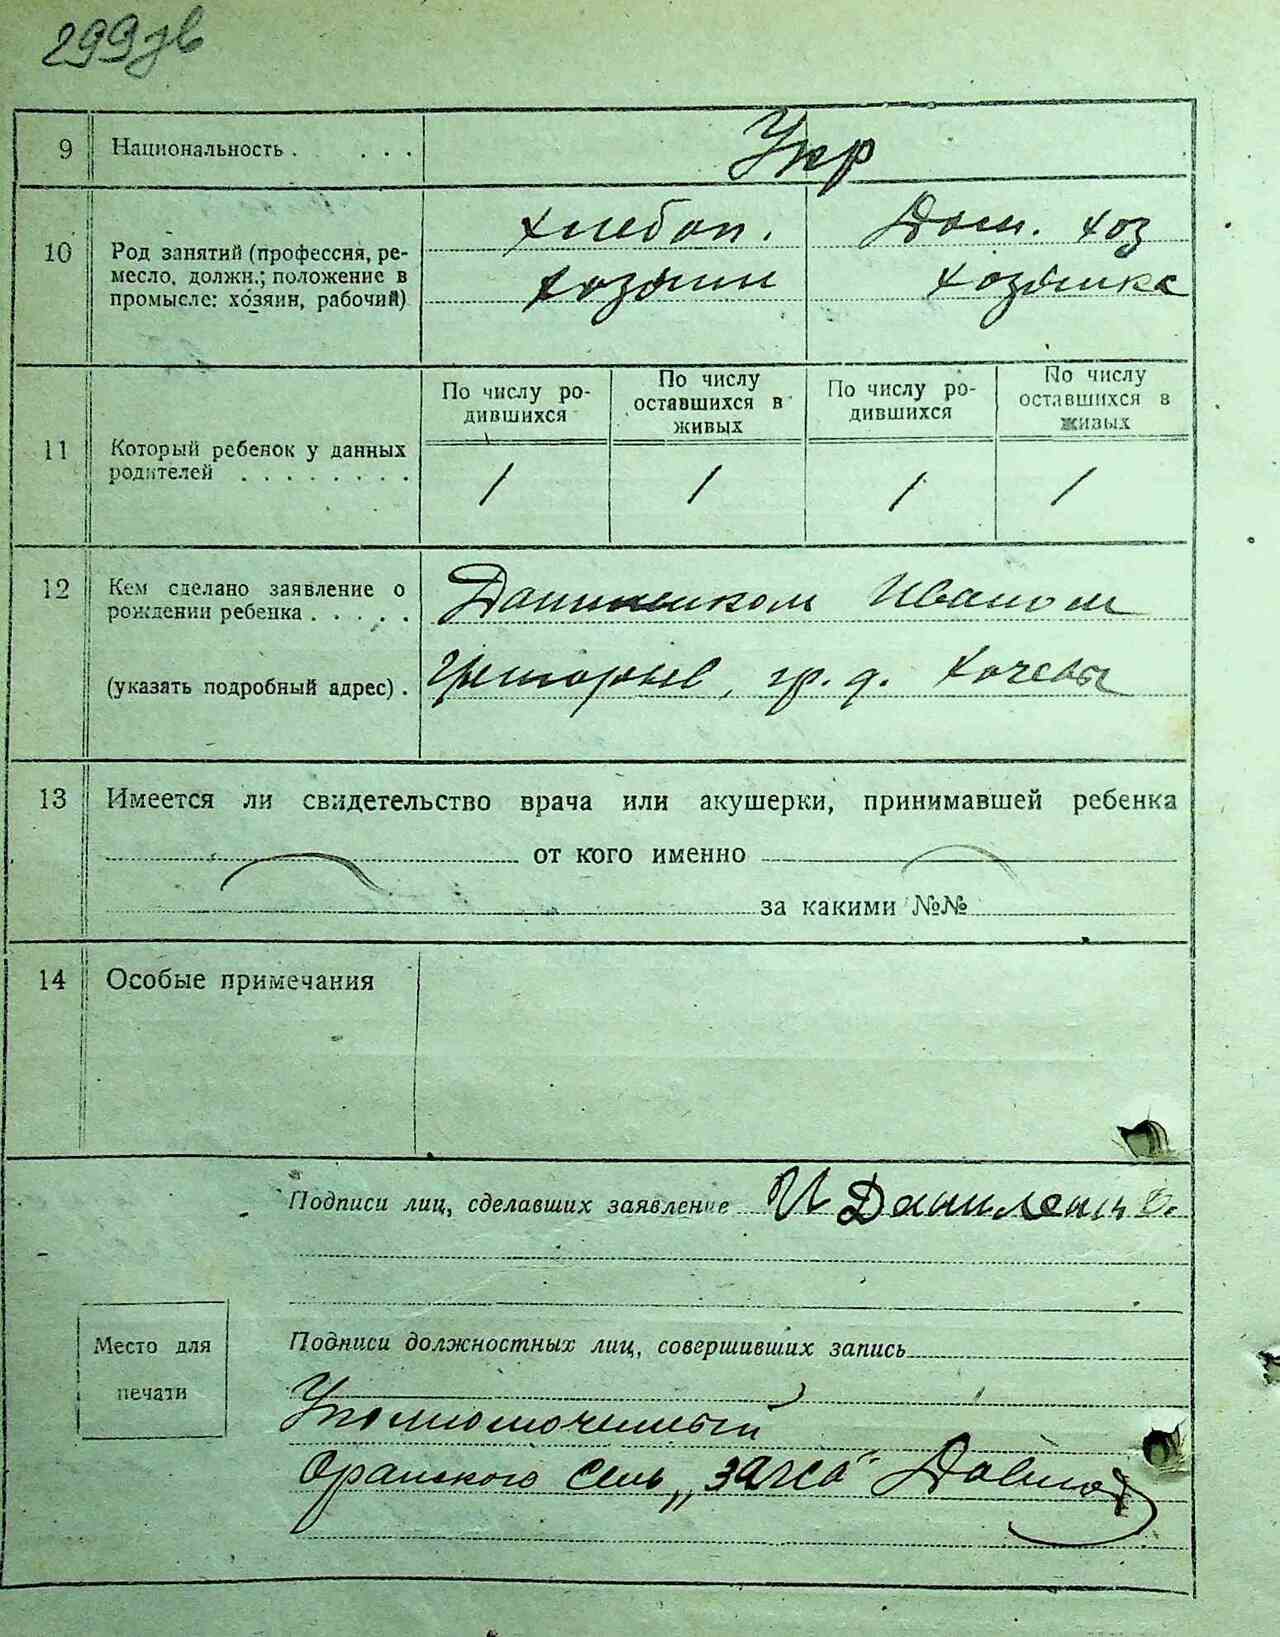 299зв
9 Национальность . . . . Укр
10 Род занятий (профессия, ре-
месло, должн.; положение в
промысле: хозяин, рабочий)
хлебоп. Дом. хоз
хозяин хозяйка
11 Который ребенок у данных
родителей . . . . . . . .
По числу ро-
дившихся
По числу
оставшихся в
живых
По числу ро-
дившихся
По числу
оставшихся в
живых
1 1 1 1
12 Кем сделано заявление о
рождении ребенка . . . . .
(указать подробный адрес) .
Иваном
Григорьев, гр. д.
13 Имеется ли свидетельство врача или акушерки, принимавшей ребенка
от кого именно
за какими №№
14 Особые примечания
Подписи лиц, сделавших заявление И Даниленко.
Подписи должностных лиц, совершивших запись
Место для
печати
Уполномоченный
Оранского Сель „загса"